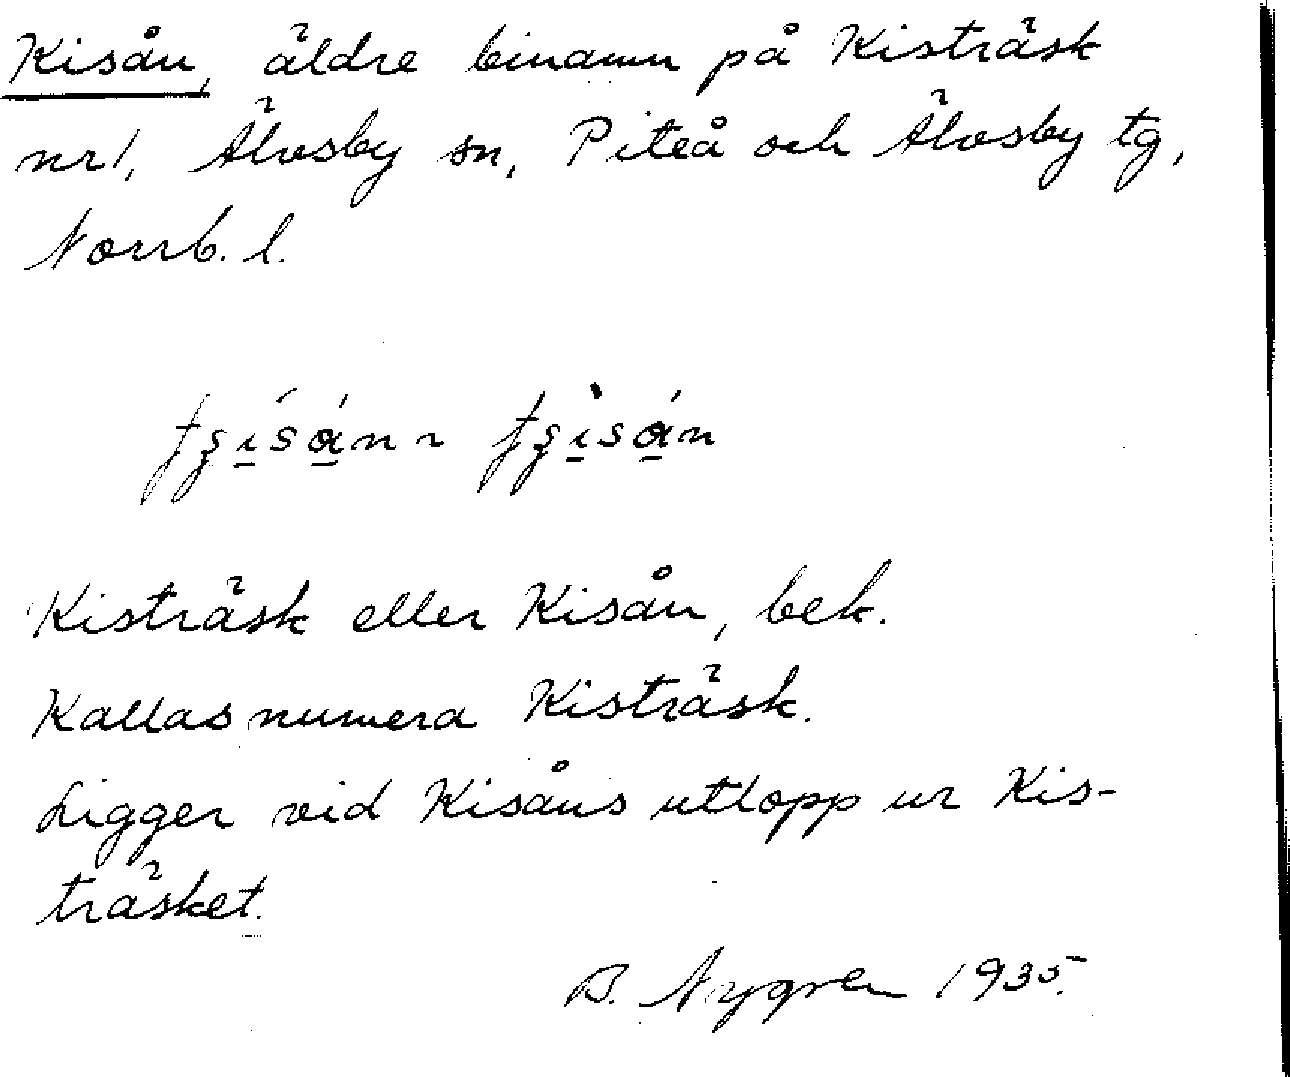 Kisån, äldre binamn på Kisträsk
nr 1, Älvsby sn, Piteå och Älvsby tg,
Norrb. l.
Kisträsk eller Kisån, bek.
Kallas numera Kisträsk.
Ligger vid Kisåns utlopp ur Kis-
träsket.
B. Nygren 1935.